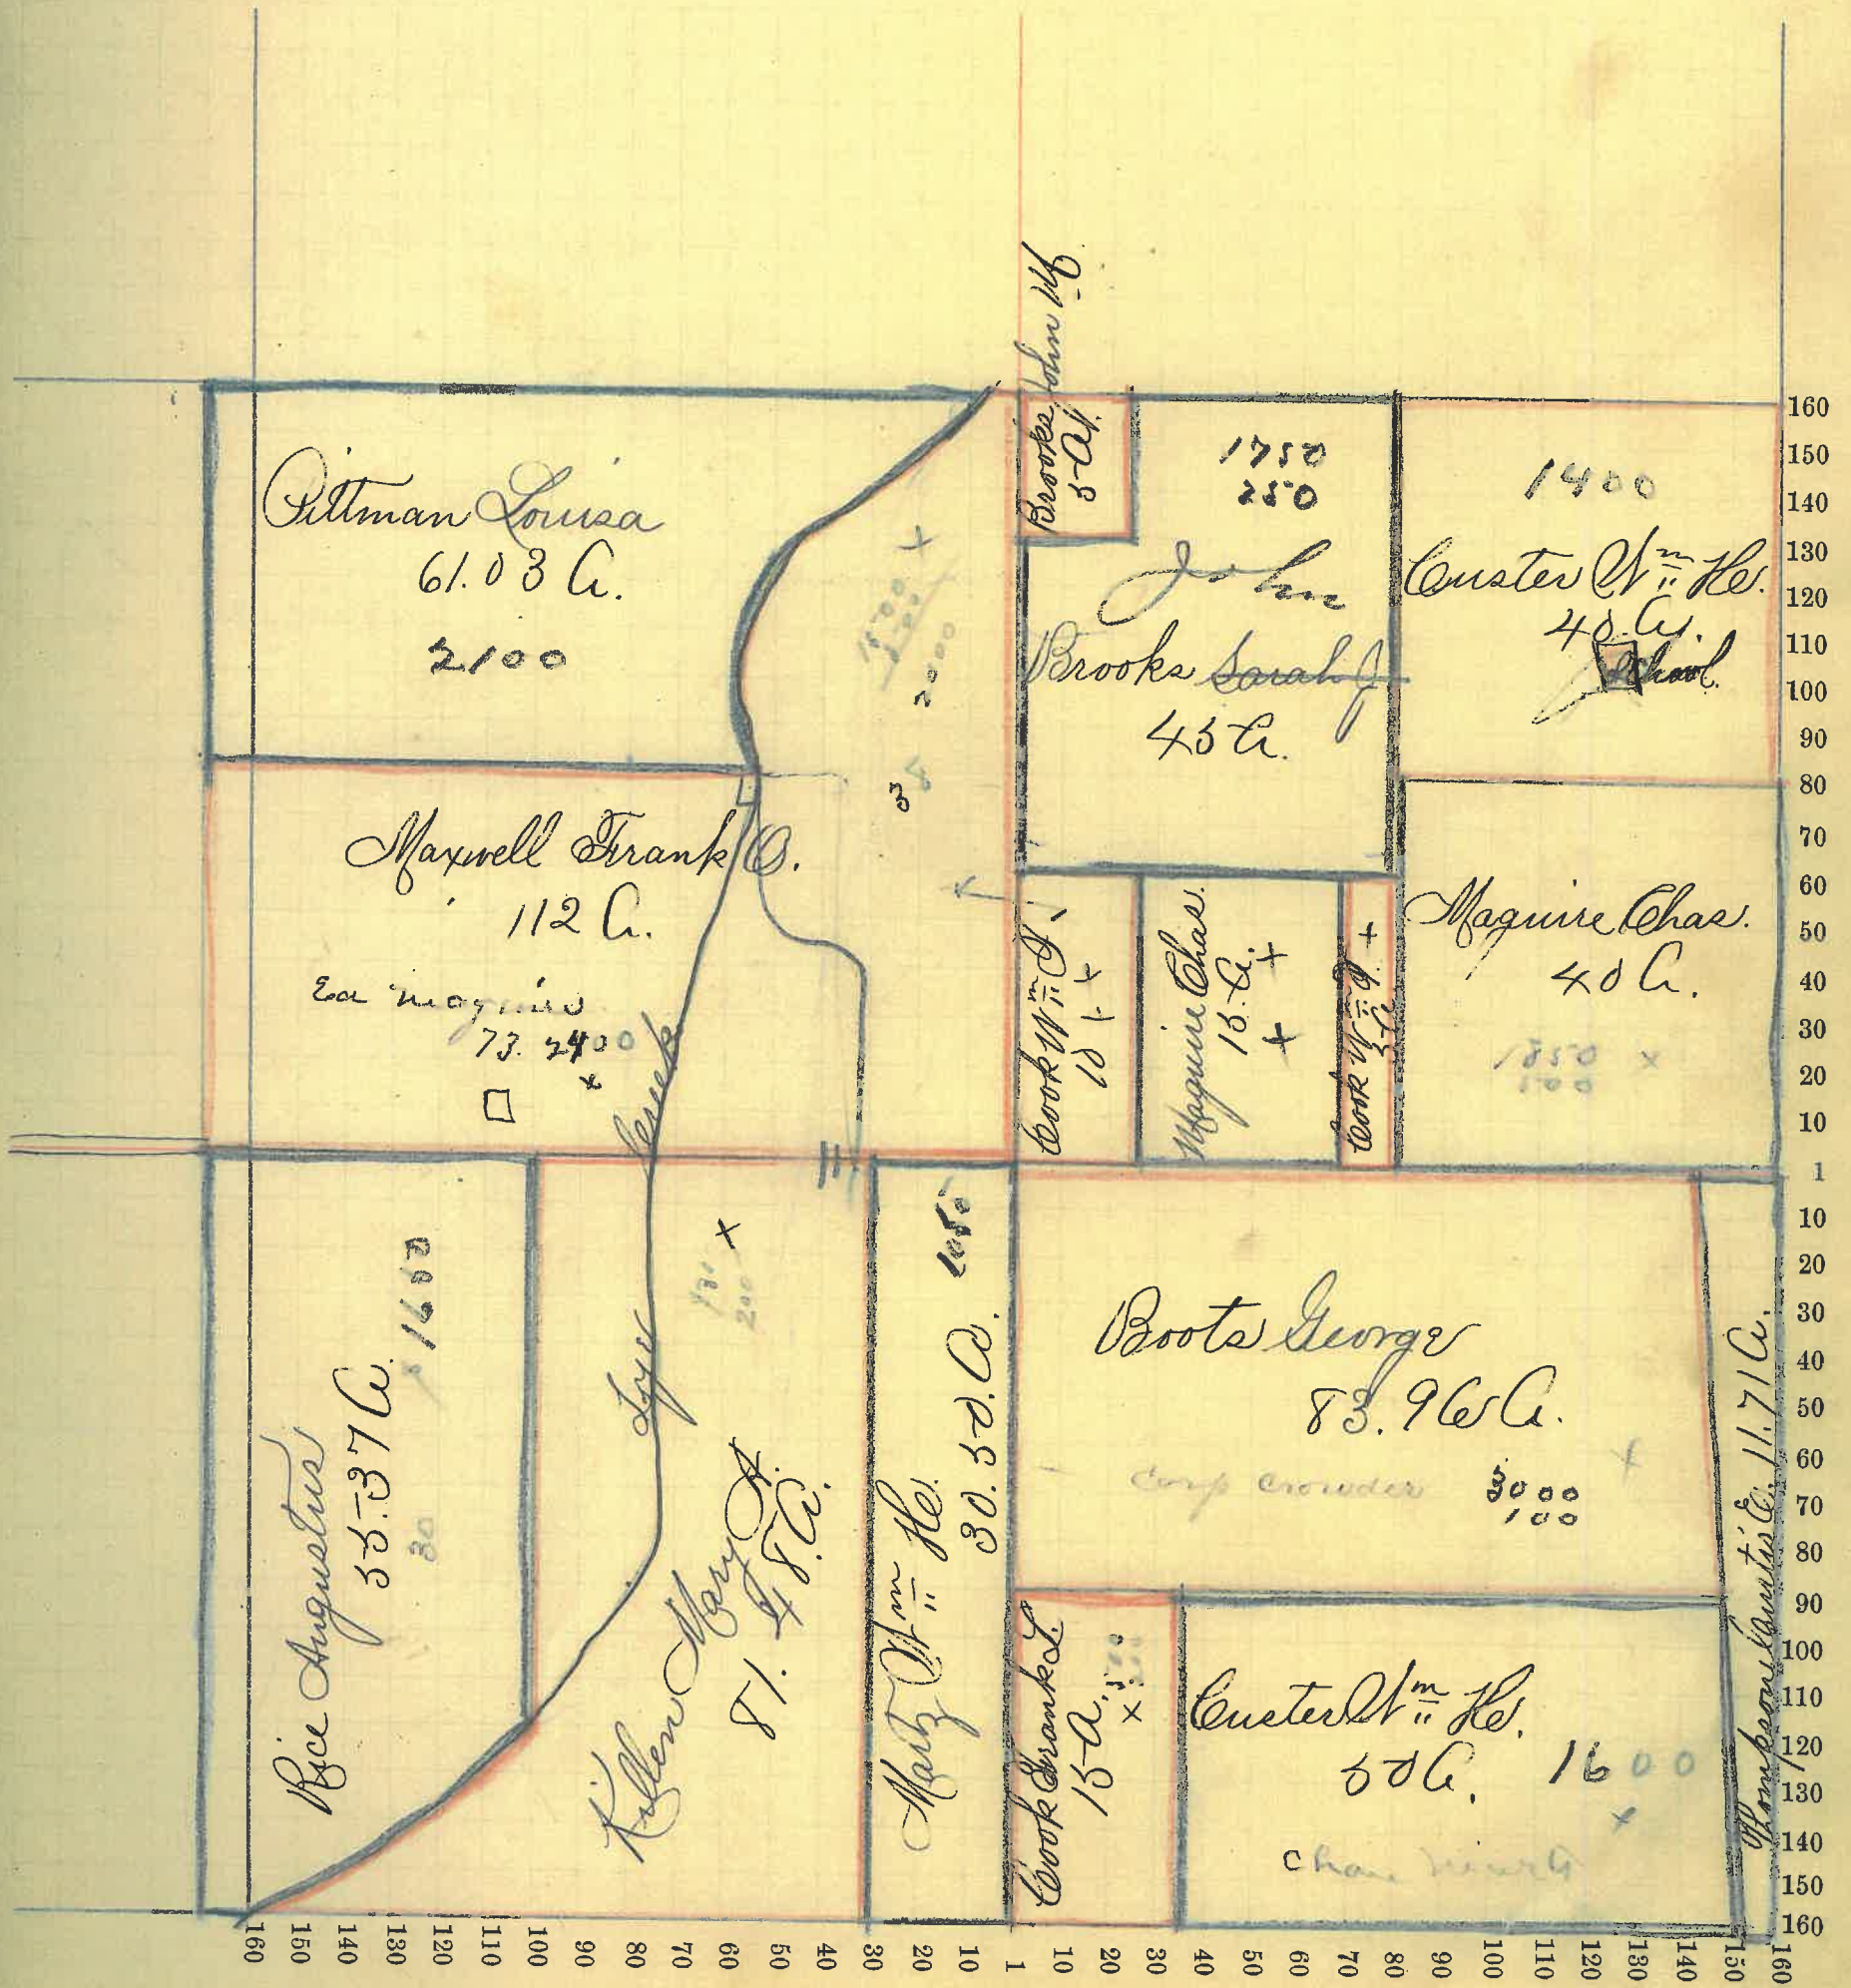 Brooks John W.
5 A.
Pittman Louisa
61.03 A.
2100
1750
250
John
Brooks Sarah J
45 A.
1400
Custer Wm H.
40 A.
School.
2000
35
Maxwell Frank O.
112 A.
Ed Maguire
73. 2400
Cook Wm
10
Maguire Chas.
15 A.
Cook Wm
Maguire Chas.
40 A.
1850
500
Lye Creek
Rice Augustus
55.37 A.
1650
30
200
Killen Mary A.
81.48 A.
Martz Wm H.
30.50 A.
1050
Boots George
83.96 A.
Corp Crowder
3000
100
Cook Frank L.
15 A.
Custer Wm H.
50 A.
1600
Thompson Curtis E. 11.71 A.
160
150
140
130
120
110
100
90
80
70
60
50
40
30
20
10
1
10
20
30
40
50
60
70
80
90
100
110
120
130
140
150
160
160 150 140 130 120 110 100 90 80 70 60 50 40 30 20 10 1 10 20 30 40 50 60 70 80 90 100 110 120 130 140 150 160